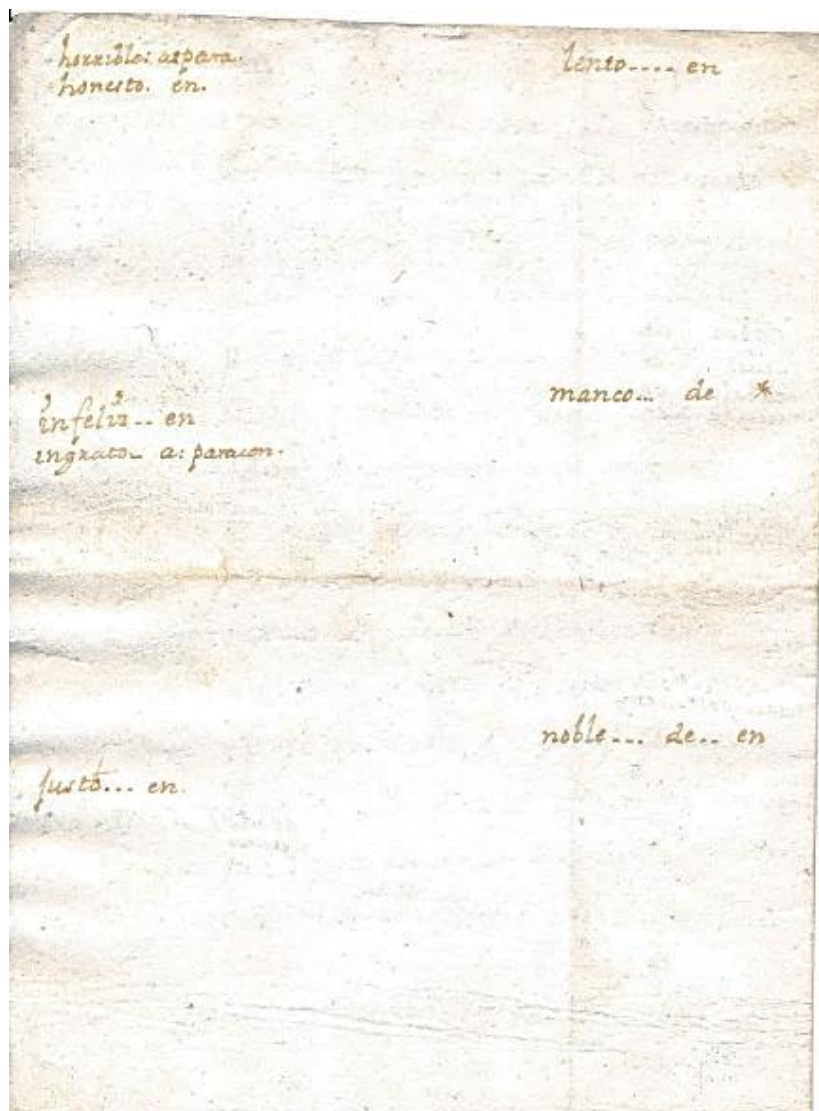 horrible: a: para.
honesto. en.
infeliz.. en
ingrato.. a: para: con.
justo... en.
lento.... en
manco... de *
noble... de.. en